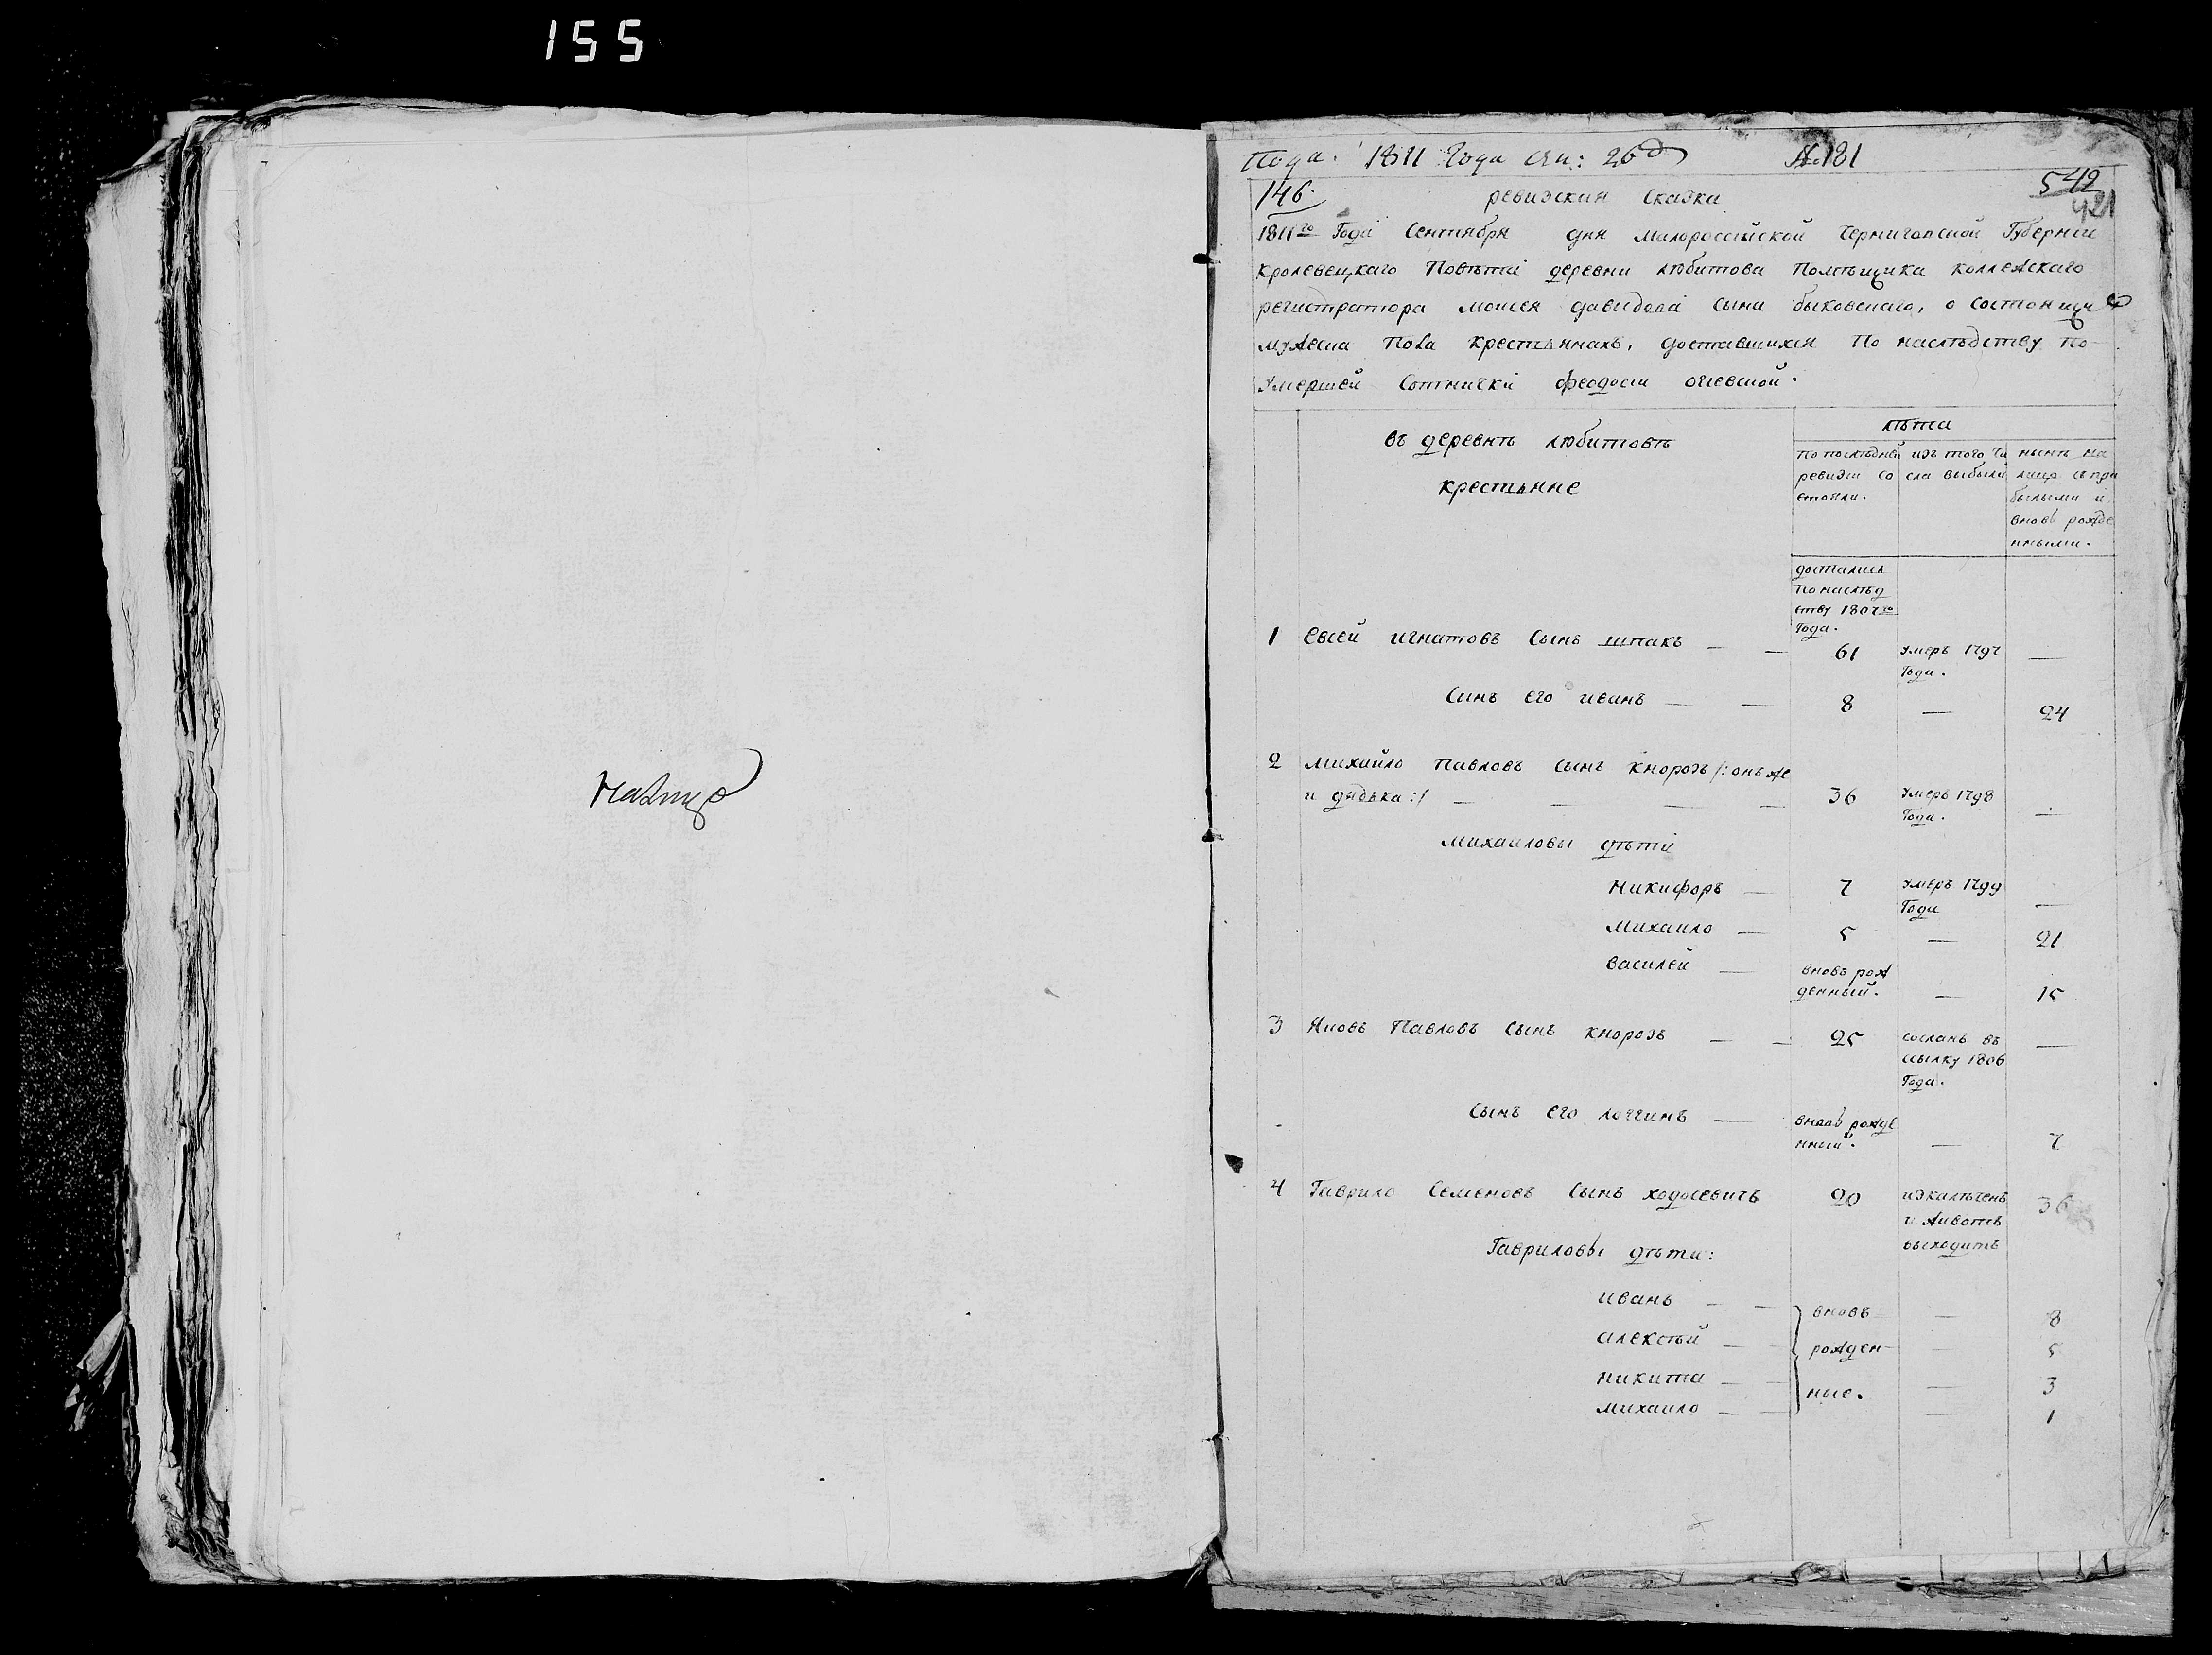 155
Пода. 1811 Года сен: 26д №181
146. 542
421
ревизская сказка
1811го Года Сентября дня Малороссійской Черниговской Губерніи
Кролевецкаго Повѣта деревни Любитова Помѣщика коллежскаго
регистратора моисея давидова сына быковскаго, о состоящихъ
мужеска пола крестьянахъ, доставшихся по наслѣдству по
умершей Сотнички феодосіи
въ деревнѣ любитовѣ
крестьяне
лѣта
по послѣдней ревизіи состояли.
изъ того числа выбыли
нынѣ на лицо съ прибылыми и вновь рожденными.
достались
по наслѣд
ству 1807го
Года.
1 Евсей игнатовъ Сынъ шпакъ — — 61 умеръ 1797 —
Года.
Сынъ его иванъ — — 8 — 24
2 михайло павловъ сынъ кнорозъ /: онъ же
и дядька :/ — — — — 36 умеръ 1798 —
Года.
михаиловы дѣти
никифоръ — 7 умеръ 1799 —
Года
михаило — 5 — 21
василей — вновь рож
денный. — 15
3 Яковъ Павловъ Сынъ кнорозъ — — 25 сосланъ въ —
ссылку 1806
Года.
Сынъ его логгинъ — вновь рожде
нный. — 7
4 Гаврило Семеновъ Сынъ ходосевичъ 20 изкалѣченъ 36
и животъ
выходитъ
Гавриловы дѣти:
иванъ — — вновь — 8
алексѣй — — рожден- — 5
никита — — ные. — 3
михаило — — — 1